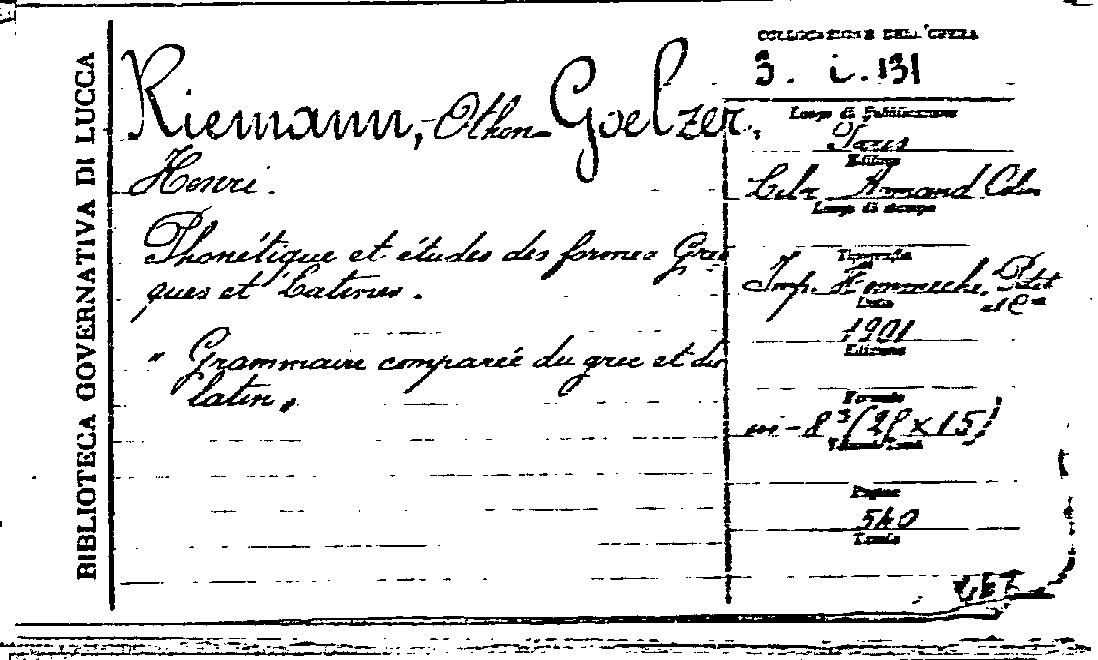 BIBLIOTECA GOVERNATIVA DI LUCCA
Riemann, Othon - Goelzer,
Henri.
Phonétique et études des formes Grec
ques et Latines.
" Grammaire comparée du grec et du
latin "
COLLOCAZIONE DELL'OPERA
3. i. 131
Luogo di Pubblicazione
Paris
Editore
Libr. Armand Colin
Luogo di stampa
Tipografia
Imp. Petit
et Cie
Data
1901
Edizione
Formato
in-8° (2 x 15)
Pagine
540
Tomis